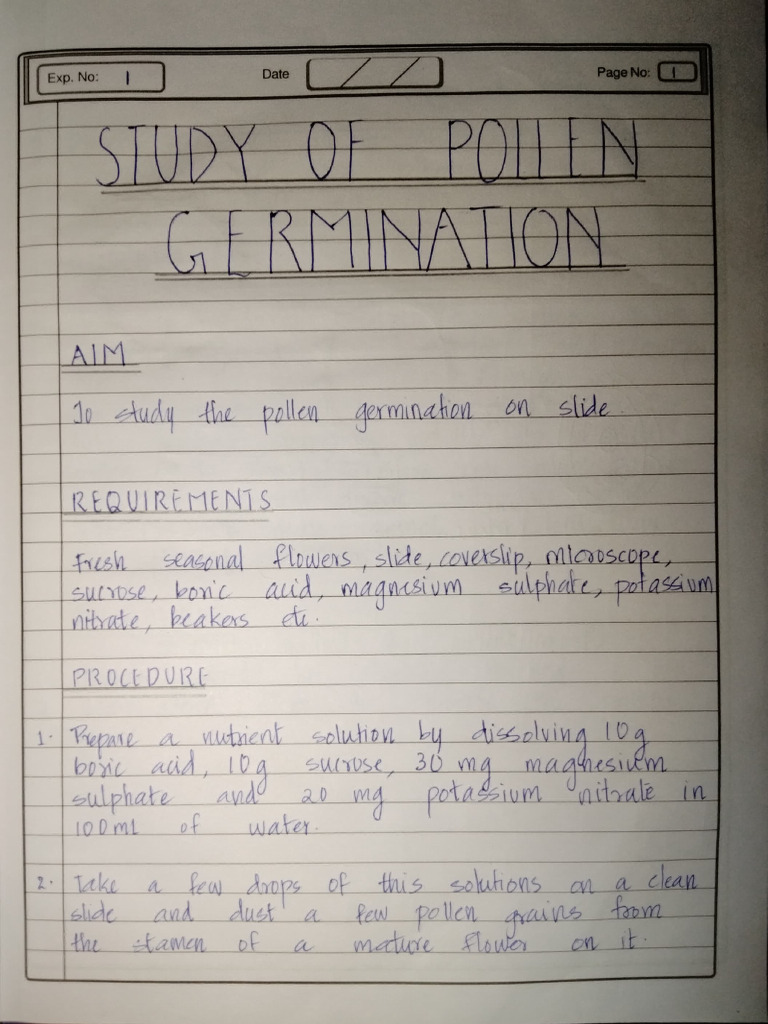 Exp. No: 1 Date / / Page No: 1
STUDY OF POLLEN
GERMINATION
AIM
To study the pollen germination on slide.
REQUIREMENTS
Fresh seasonal flowers, slide, coverslip, microscope,
sucrose, boric acid, magnesium sulphate, potassium
nitrate, beakers etc.
PROCEDURE
1. Prepare a nutrient solution by dissolving 10g
boric acid, 10g sucrose, 30 mg magnesium
sulphate and 20 mg potassium nitrate in
100ml of water.
2. Take a few drops of this solutions on a clean
slide and dust a few pollen grains from
the stamen of a mature flower on it.